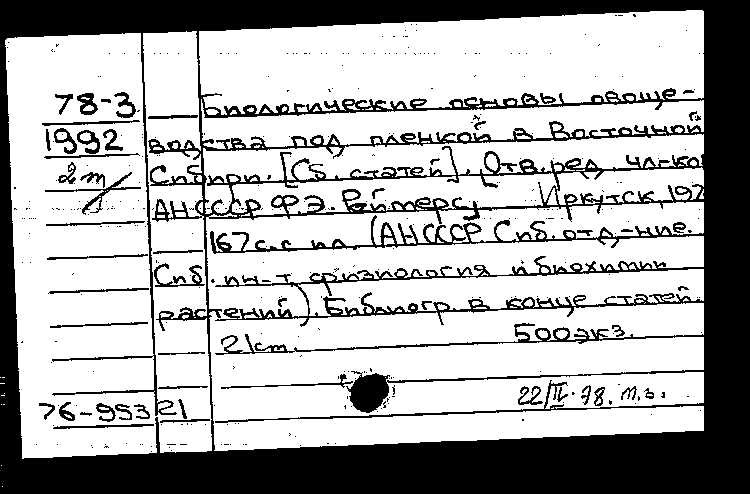 78-3 Биологические основы овоще-
1992 водства под пленкой в Восточной
2т Сибири. [Сб. статей]. Отв. ред. чл-кор
АН СССР Ф.Э. Реймерс, Иркутск, 197
167 с. с ил. (АН СССР. Сиб. отд-ние.
Сиб. ин-т физиология и биохимии
растений). Библиогр. в конце статей.
21 cm. 500 экз.
22/II-78. т.з.
76-953 21